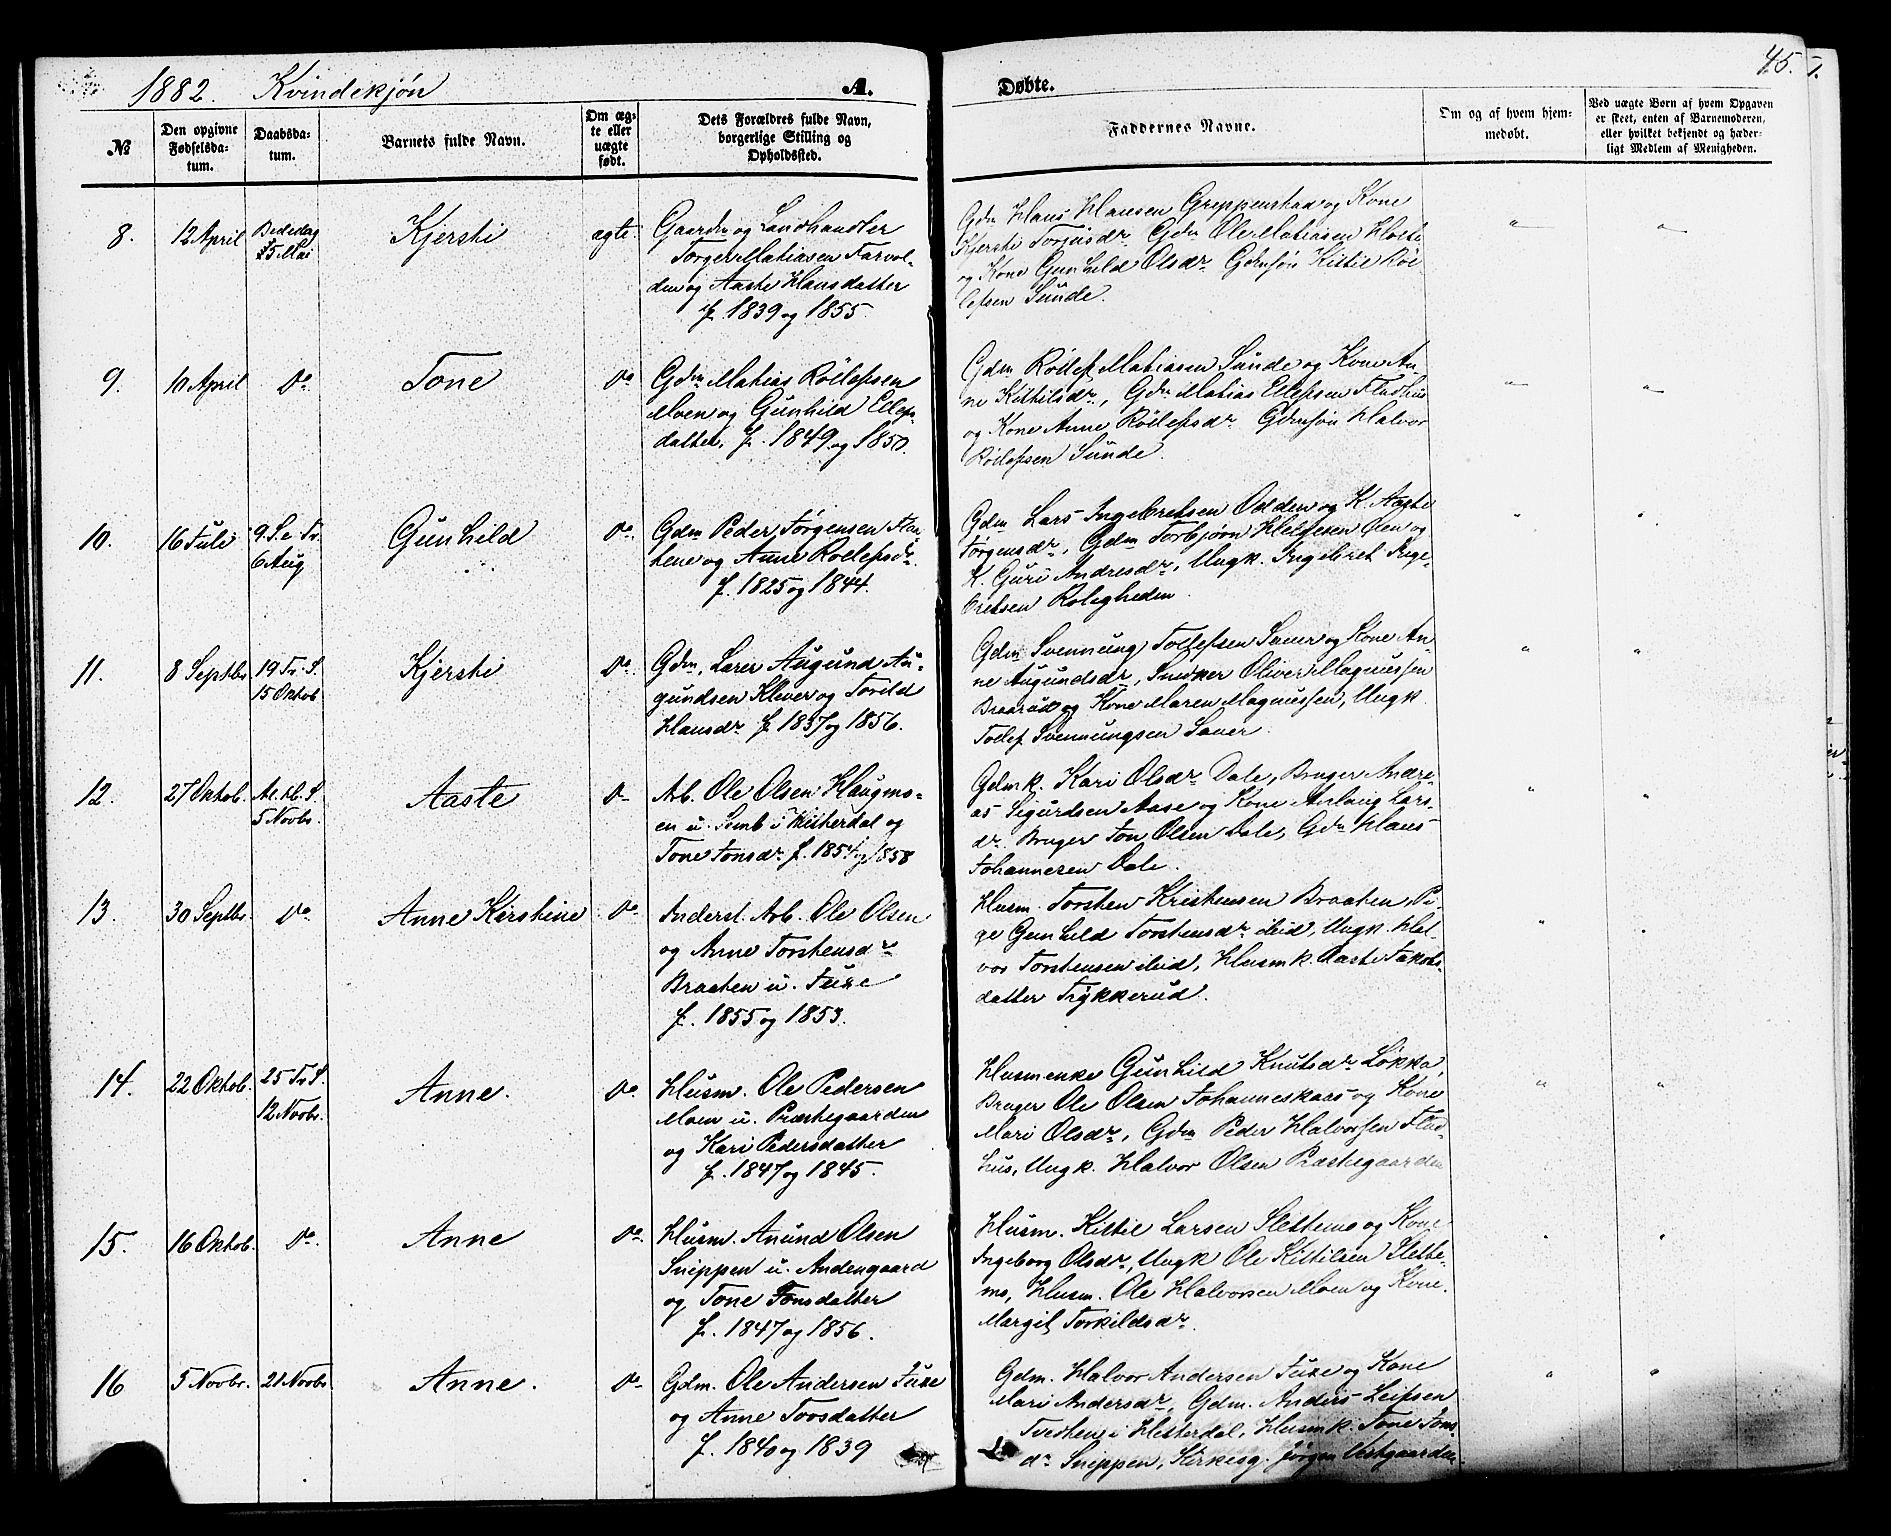 1882. Kvindekjøn
A.
Døbte.
45.
№
Den opgivne Fødselsdatum.
Daabsdatum.
Barnets fulde Navn.
Om ægte eller uægte født.
Dets Forældres fulde Navn, borgerlige Stilling og Opholdssted.
Faddernes Navne.
Om og af hvem hjemmedøbt.
Ved uægte Børn af hvem Opgaven er skeet, enten af Barnemoderen, eller hvilket bekjendt og hæderligt Medlem af Menigheden.
8.
12 April
Bededag
5 Mai
Kjersti
ægte.
Gaardm og Landhandler
Torger Matiasen Farvol-
den og Aaste Hansdatter
f. 1839 og 1855.
Gdm Hans Hansen Greppenstad og Kone
Kjersti Torjusdr. Gdm Ole Matiasen Holte
og Kone Gunhild Olsdr. Gdmsøn Kittil Röl-
lefsen Sunde.
9.
10 April
Do
Tone
Do
Gdm Matias Röllefsen
Moen og Gunhild Ellefs-
datter, f. 1849 og 1850.
Gdm Röllef Matiasen Sunde og Kone An-
ne Kittilsdr, Gdm Matias Ellefsen Fladhus
og Kone Anne Röllefsdr. Gdmsøn Halvor
Röllefsen Sunde.
10.
16 Juli
9. S. e. Tr.
6 Aug
Gunhild
Do.
Gdm Peder Jørgensen
og Anne Rollefsdr.
f. 1825 og 1844.
Gdm Lars Ingebretsen Odden og K. Aaste
Jørgensdr, Gdm Torbjørn Helgesen Øen og
K. Guri Andresdr, Ungk. Ingebret Inge-
bretsen Roligheden.
11.
8 Septbr
19 Tr. S.
15 Oktob
Kjersti
Do.
Gdm, Lærer Augund Au-
gundsen Klever og Torild
Hansdr f. 1837 og 1856.
Gdm Svennung Tollefsen Sauer og Kone An-
ne Augundsdr, Snidker Oliver Magnussen
Braarud og Kone Maren Magnussen, Ungk.
Tollef Svennungsen Sauer.
12.
27 Oktob.
Al. Hl. S.
5 Novbr.
Aaste
Do
Arb. Ole Olsen Haugmo-
en u. Semb i Hitterdal og
Tone Jonsdr f. 1854 og 1858
Gdmk. Kari Olsdr Dale, Bruger Andre-
as Sigurdsen Aase og Kone Anlaug Lars-
dr. Bruger Jon Olsen Dale, Gdm Hans
Johannesen Dale.
13.
30 Septbr.
Do
Anne Kirstine
Do
Anderst. Arb. Ole Olsen
og Anne Torstensdr
Braaten u. Fuxe
f. 1855 og 1853.
Husm. Torsten Kristensen Braaten, Pi-
ge Gunhild Torstensdr ibid, Ungk. Hal-
vor Torstensen ibid, Husmk. Aaste Jakobs-
datter Trykkerud.
14.
22 Oktob.
23 Tr S.
12 Novbr.
Anne.
Do.
Husm. Ole Pedersen
Moen u. Præstegaarden
og Kari Pedersdatter
f. 1847 og 1845.
Husmenke Gunhild Knutsdr Løkka,
Bruger Ole Olsen Johanneskaas og Kone
Mari Olsdr, Gdm Peder Halvorsen Flad-
hus, Ungk. Halvor Olsen Præstegaarden
15.
16 Oktob.
Do.
Anne
Do.
Husm. Anund Olsen
Snippen u. Andengaard
og Tone Jonsdatter
f. 1847 og 1856.
Husm. Kittil Larsen Slettemo og Kone
Ingeborg Olsdr, Ungk Ole Kittilsen Slette-
mo, Husm. Ole Halvorsen Moen og Kone
Margit Torkildsdr.
16
5 Novbr.
21 Novbr
Anne.
Do
Gdm. Ole Andersen Fuxe
og Anne Torsdatter
f. 1840 og 1839
Gdm. Halvor Andersen Fuxe og Kone
Mari Andersdr, Gdm. Anders Leifsen
Tveiten i Hitterdal, Husmk. Tone Jons-
dr Snippen, Kirkesg. Jørgen Vestgaarden.